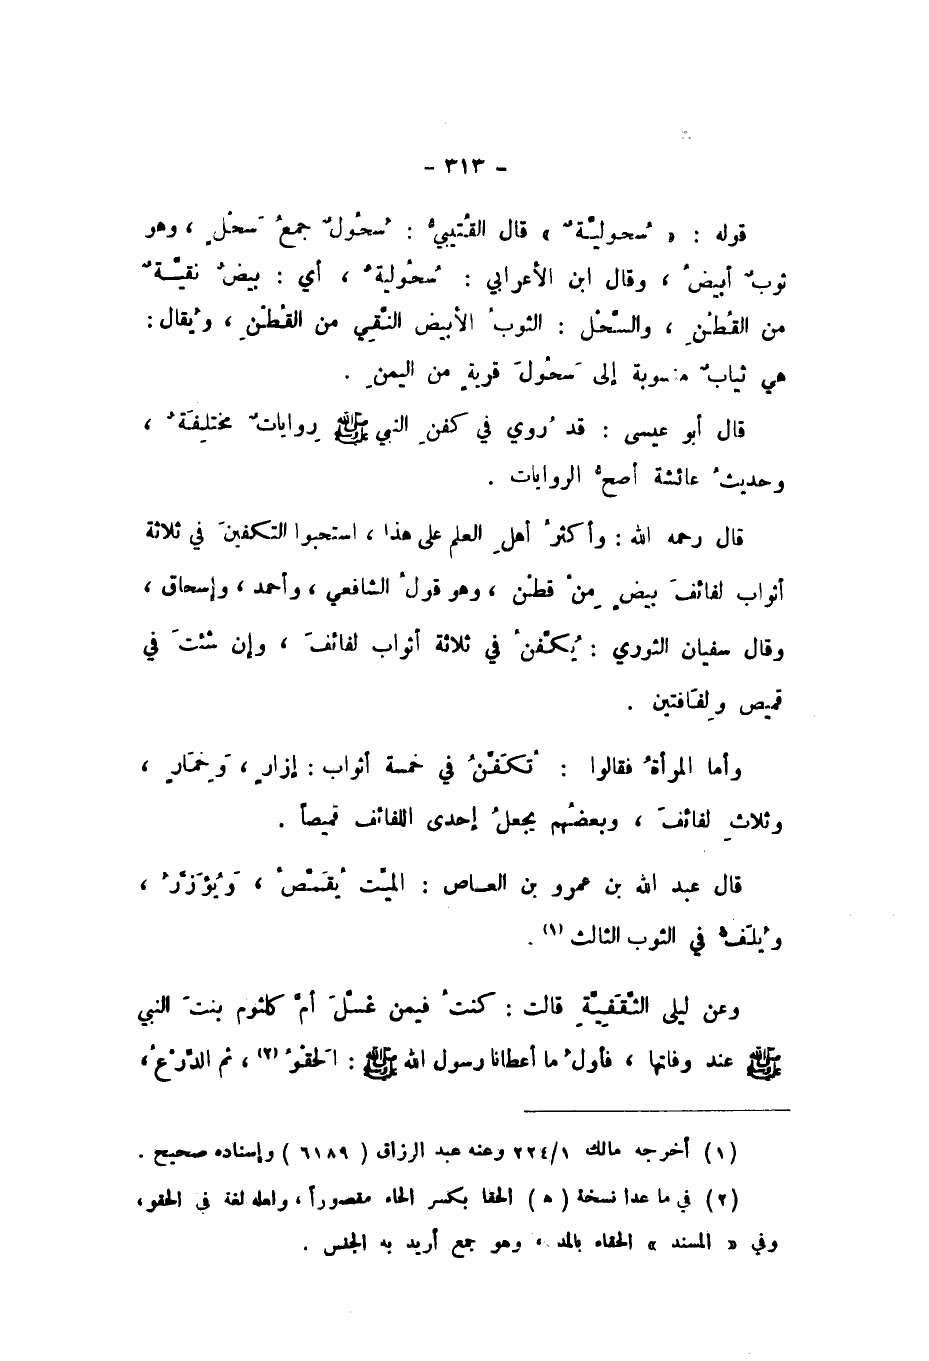 - ٣١٣ -
قوله : « سُحوليَّةٌ » قال القُتيبيُّ : سُحُولٌ جمعُ سَحْلٍ ، وهو
ثوبٌ أبيضُ ، وقال ابن الأعرابي : سُحُولية ُ ، أي : بيضٌ نقيَّةٌ
من القُطْنِ ، والسَّحْل : الثوبُ الأبيض النَّقي من القُطْنِ ، ويُقال :
هي ثيابٌ منسوبة إلى سَحُولَ قريةٍ من اليمنِ .
قال أبو عيسى : قد رُوي في كفنِ النبي ﷺ رِواياتٌ مختلِفَةُ ،
وحديثُ عائشة أصحُّ الروايات .
قال رحمه الله : وأكثرُ أهلِ العلم على هذا ، استحبوا التكفينَ في ثلاثة
أثواب لفائفَ بيضٍ مِنْ قطْن ، وهو قولُ الشافعي ، وأحمد ، وإسحاق ،
وقال سفيان الثوري : يُكفَّنُ في ثلاثة أثواب لفائفَ ، وإن شئتَ في
قميص ولِفَافتين .
وأما المرأةُ فقالوا : تُكَفَّنُ في خمسة أثواب : إزارٍ ، وَخِمَارٍ ،
وثلاثِ لفائفَ ، وبعضُهم يجعلُ إحدى اللفائف قميصاً .
قال عبد الله بن عمرو بن العاص : الميِّت يُقَمَّصُ ، وَيُؤَزَّرُ ،
ويُلَفُّ في الثوب الثالث (١) .
وعن ليلى الثَّقَفِيَّةِ قالت : كنتُ فيمن غسَّلَ أمَّ كلثوم بنتَ النبي
ﷺ عند وفاتها ، فأولُ ما أعطانا رسول الله ﷺ : الَحقْوُ (٢) ، ثم الدِّرْعُ ،
(١) أخرجه مالك ٢٢٤/١ وعنه عبد الرزاق ( ٦١٨٩ ) وإسناده صحيح .
(٢) في ما عدا نسخة ( ه ) الحقا بكسر الحاء مقصوراً ، ولعله لغة في الحقو ،
وفي « المسند » الحقاء بالمد ، وهو جمع أريد به الجنس .